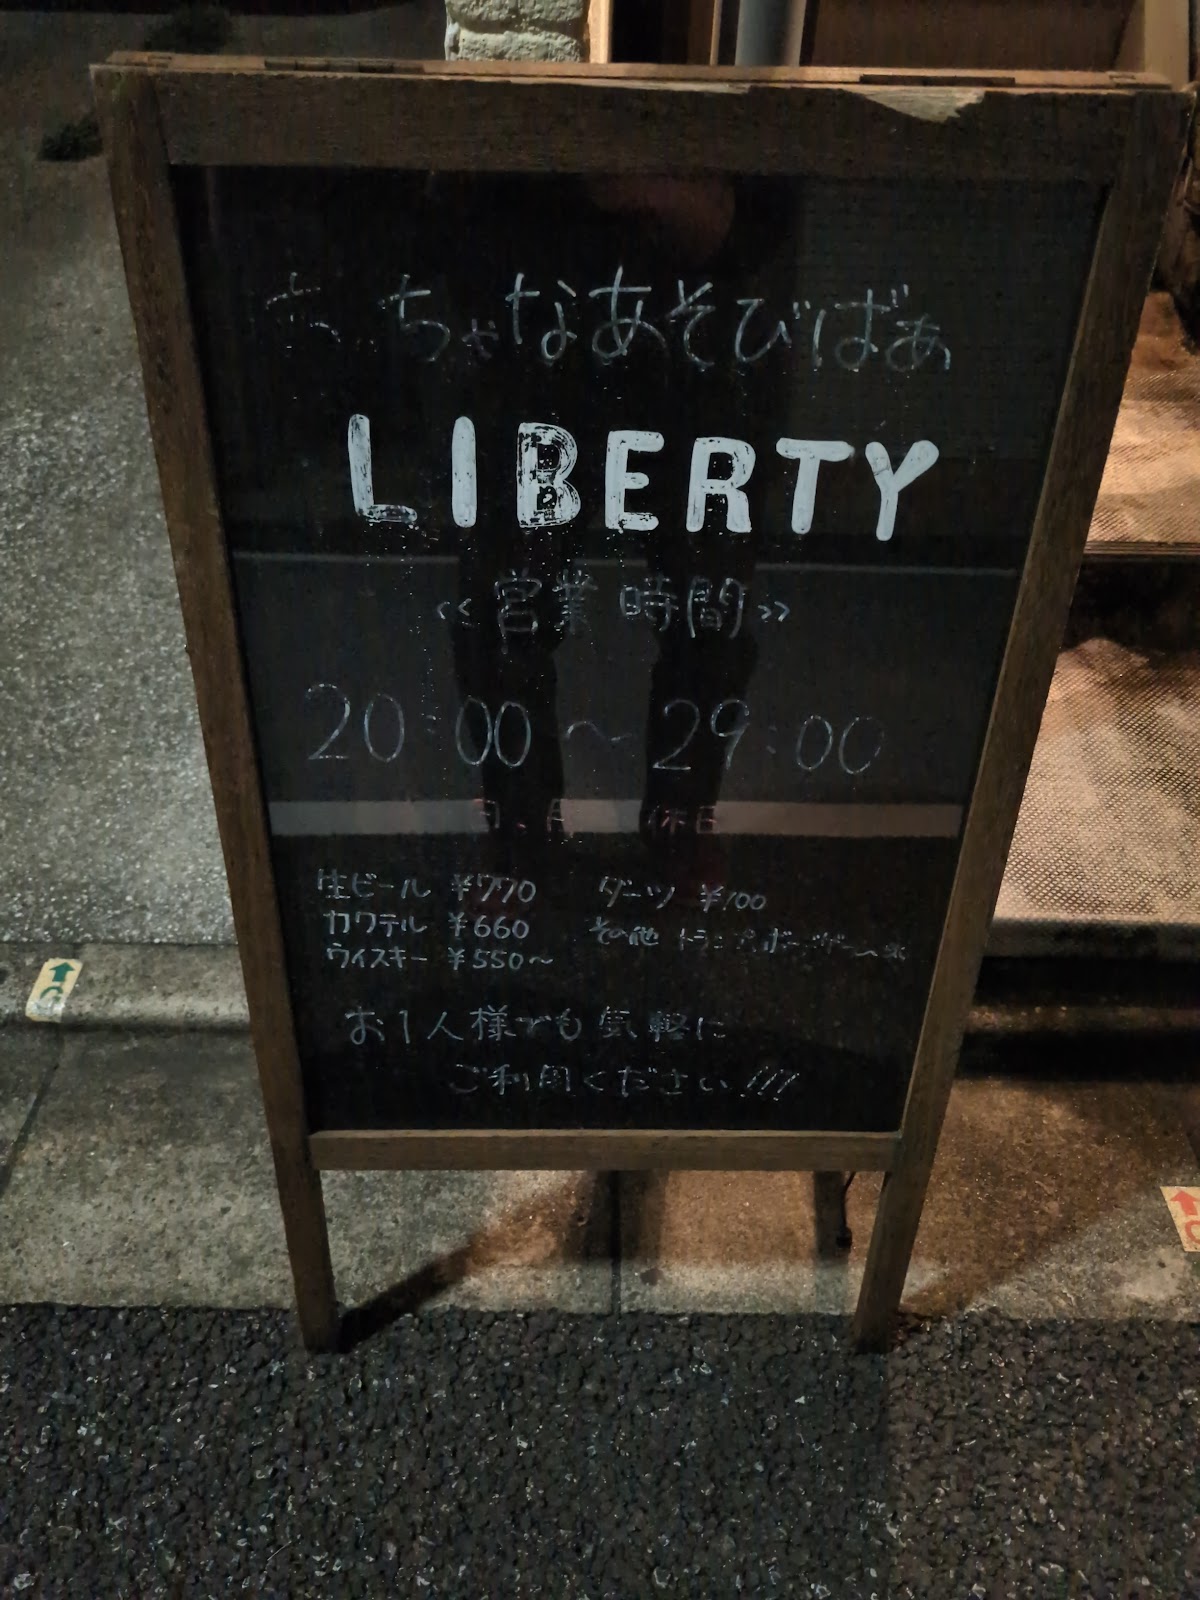 ちゃなあそびばぁ
LIBERTY
<<営業時間>>
20:00〜29:00
休日
生ビール ¥770 ダーツ ¥100
カクテル ¥660 その他 トランプ、ボードゲーム
ウイスキー ¥550〜
お1人様でも気軽に
ご利用ください!!!